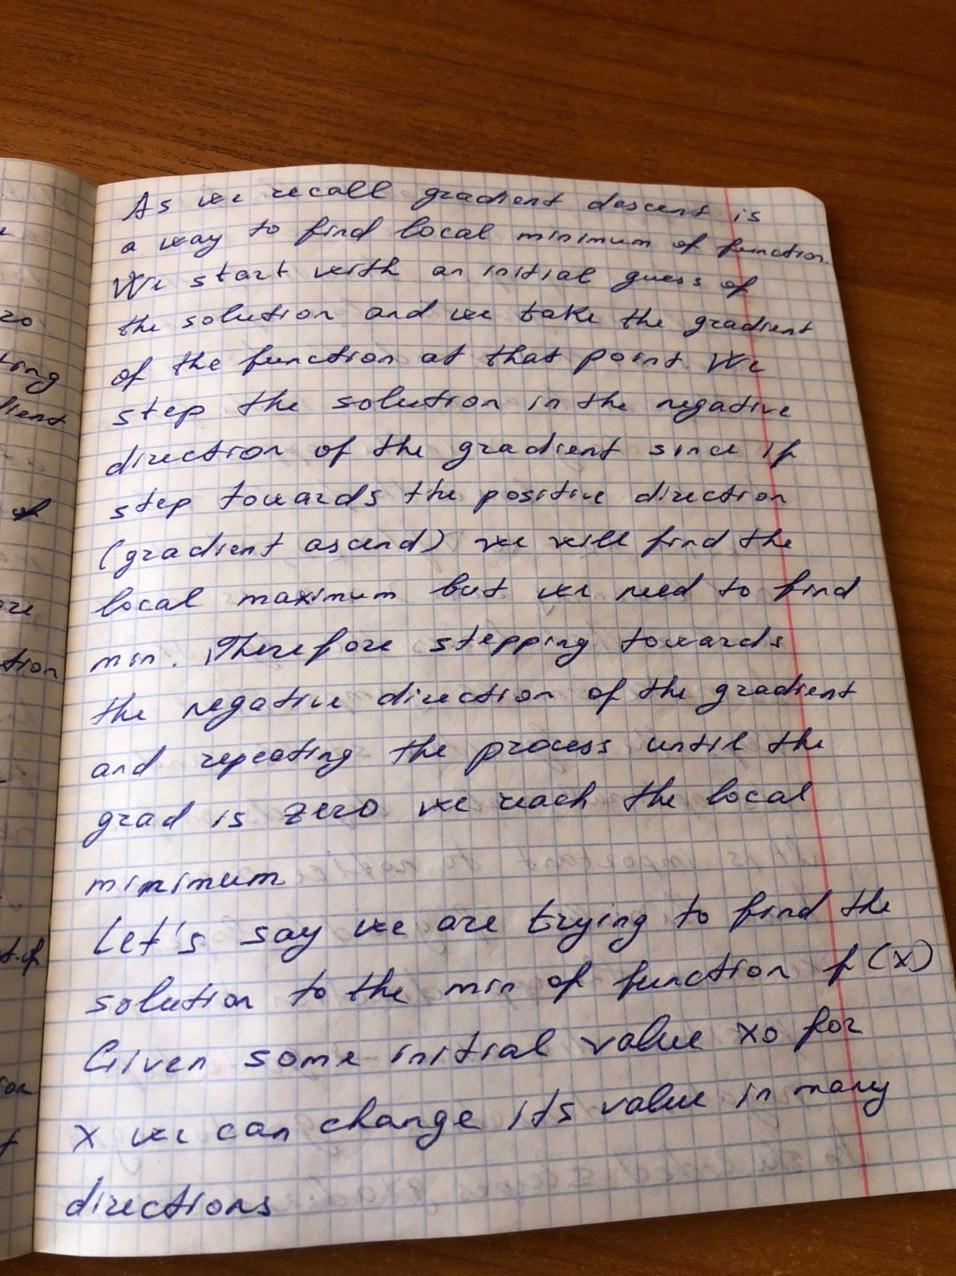 As we recall gradient descent is
a way to find local minimum of function.
We start with an initial guess of
the solution and we take the gradient
of the function at that point. We
step the solution in the negative
direction of the gradient since if
step towards the positive direction
(gradient ascend) we will find the
local maximum but we need to find
min. Therefore stepping towards
the negative direction of the gradient
and repeating the process until the
grad is zero we reach the local
minimum
Let's say we are trying to find the
solution to the min of function f(x)
Given some initial value x0 for
x we can change its value in many
directions